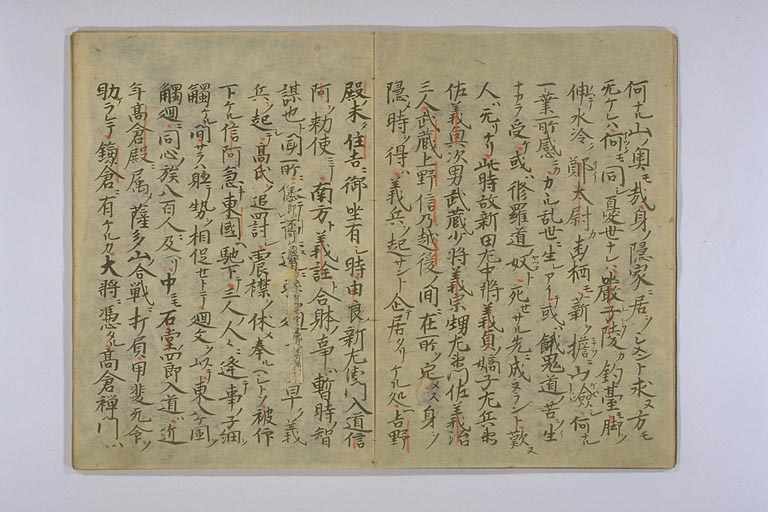 何ナル山ノ奥モ哉身ノ隠家ニ居シメント求ヌ方モ
无ケレハ何モ同シ憂世ナレハ嚴子陵カ釣䑓ニモ脚ヲ
伸水冷鄭太尉カ栖モ薪ヲ擔山險何ナル
一業所感ニカカル乱世ニ生レアイテ或ハ餓鬼道ノ苦ヲ生
ナカラ受或ハ修羅道ノ奴ト死セサル先ニ成ヌラント歎ヌ
人ハ元リケリ此時故新田左中將義貞ノ嫡子左兵衛
佐義興次男武蔵少将義宗甥左衛門佐義治
三人武蔵上野信乃越後ノ間ニ在所ヲ定メス身ヲ
隠メ時ヲ得ハ義兵ヲ起サント企テ居タリケル処ニ吉野
殿未タ住吉ニ御坐有シ時由良新左衛門入道信
阿ヲ勅使ニテ南方ト義詮ト合躰ノ事ハ暫時ノ智
謀也ト聞所也 早ク義
兵ヲ起テ高氏ヲ追罰シ震襟ヲ休メ奉ルヘシトソ被仰
下ケル信阿急東國ヘ馳下テ三人ノ人々ニ逢テ事ノ子細ヲ
觸ケル間サラハ軈テ勢ヲ相促セトテ廻文ヲ以テ東八ヶ國ヲ
觸廻ニ同心ノ族八百人ニ及ヘリ中ニモ石堂四郎入道ハ近
年高倉殿ニ属シテ薩多山ノ合戦ニ打負甲斐无命ヲ
助ラレテ鎌倉ニ有ケルカ大将ニ憑タル高倉禅門ハ